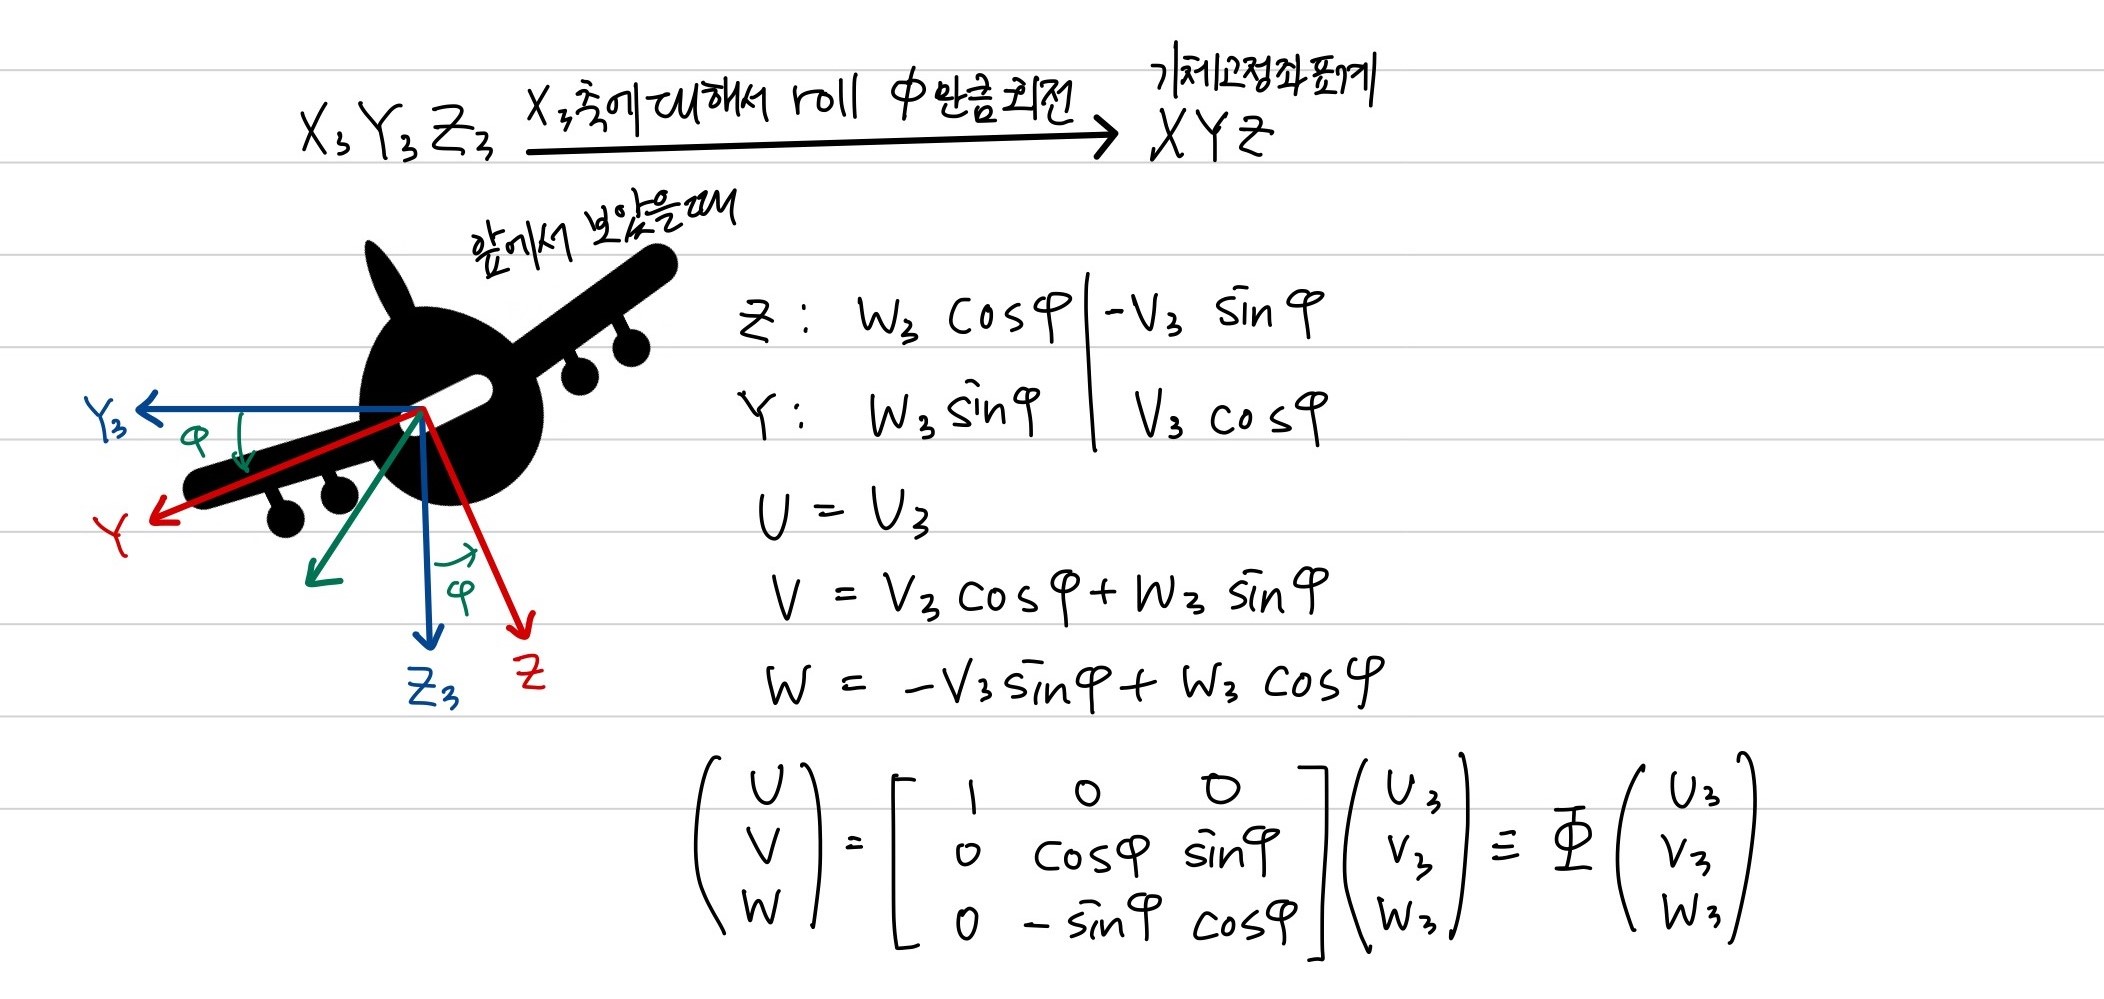 X₃Y₃Z₃ X₃축에 대해서 roll ϕ만큼 회전 기체고정좌표계 XYZ
앞에서 보았을때
Z : W₃ cosφ | -V₃ sinφ
Y : W₃ sinφ | V₃ cosφ
Y₃
φ
Y
φ
Z₃
Z
U = U₃
V = V₃ cosφ + W₃ sinφ
W = -V₃ sinφ + W₃ cosφ
(U V W) = [1 0 0
0 cosφ sinφ
0 -sinφ cosφ] (U₃ V₃ W₃) ≡ Φ (U₃ V₃ W₃)